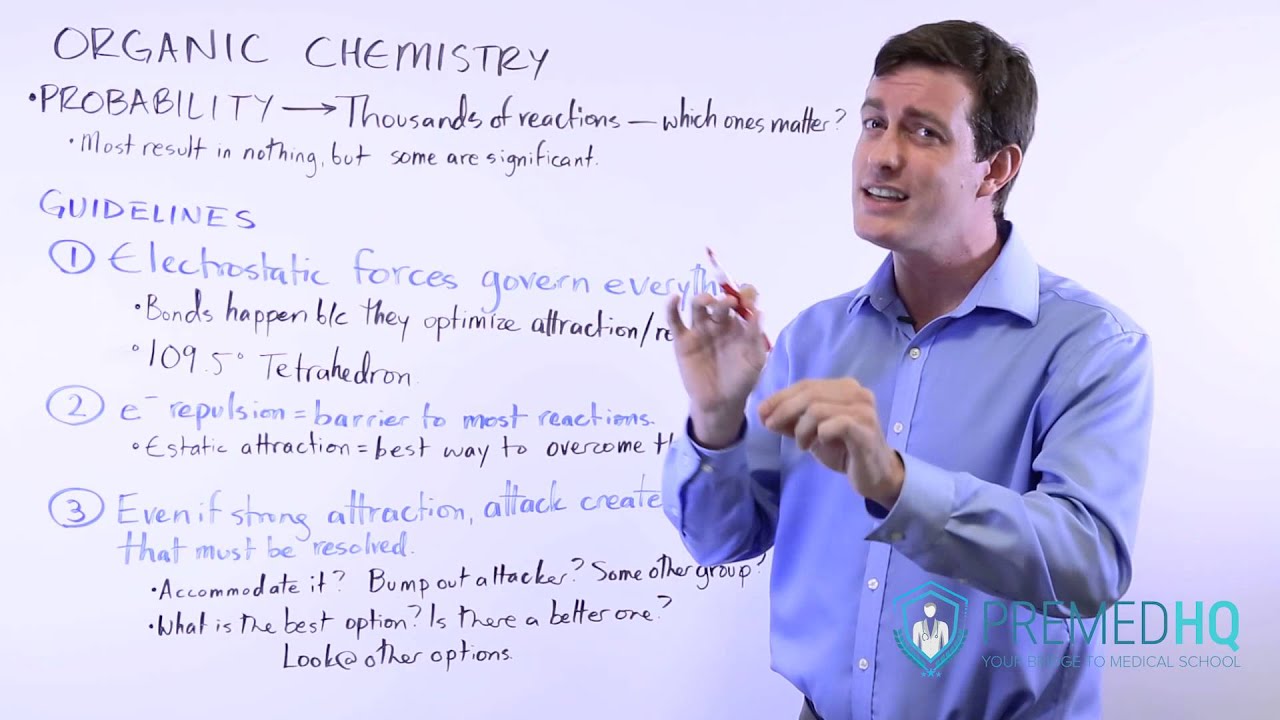 ORGANIC CHEMISTRY
•PROBABILITY → Thousands of reactions — which ones matter?
•Most result in nothing, but some are significant.
GUIDELINES
1 Electrostatic forces govern everything
•Bonds happen b/c they optimize attraction/re
•109.5° Tetrahedron.
2 e⁻ repulsion = barrier to most reactions.
•Estatic attraction = best way to overcome th
3 Even if strong attraction, attack create
that must be resolved.
•Accommodate it? Bump out attacker? Some other group?
•What is the best option? Is there a better one?
Look@other options.
PREMEDHQ
YOUR BRIDGE TO MEDICAL SCHOOL